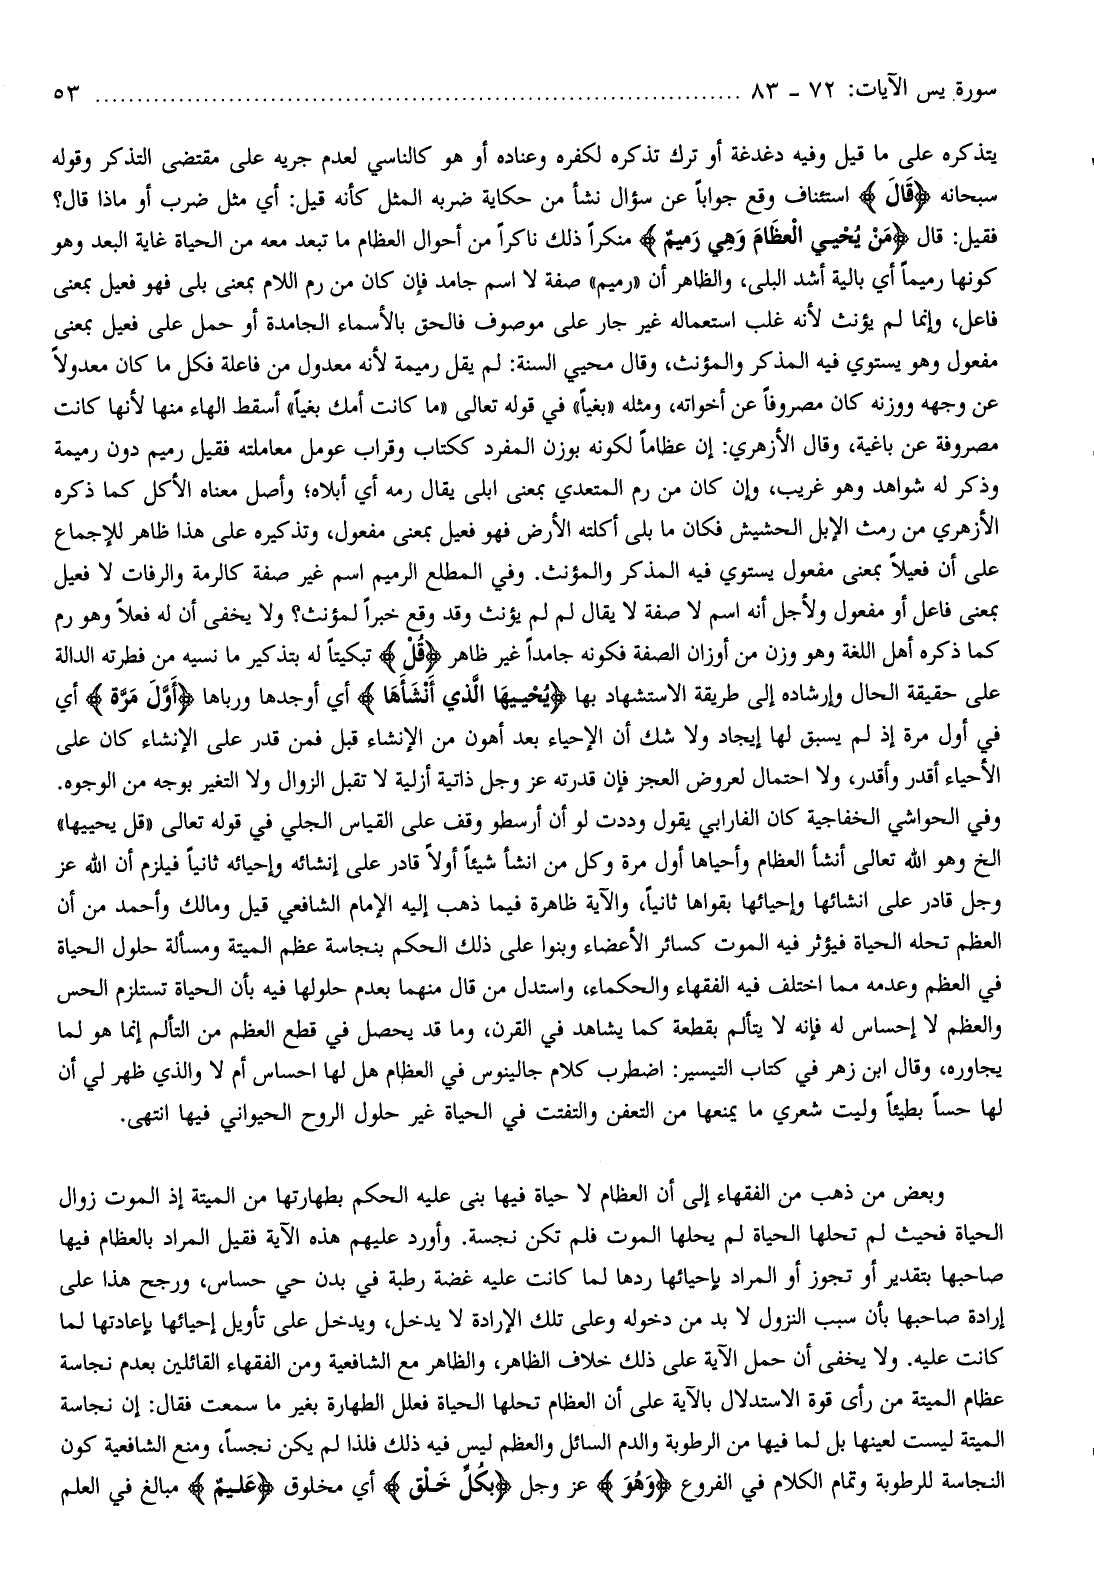 سورة يس الآيات: ٧٢ - ٨٣ ........................................................................ ٥٣
يتذكره على ما قيل وفيه دغدغة أو ترك تذكره لكفره وعناده أو هو كالناسي لعدم جريه على مقتضى التذكر وقوله
سبحانه ﴿قَالَ﴾ استئناف وقع جواباً عن سؤال نشأ من حكاية ضربه المثل كأنه قيل: أي مثل ضرب أو ماذا قال؟
فقيل: قال ﴿مَنْ يُحْيِي الْعِظَامَ وَهِيَ رَمِيمٌ﴾ منكراً ذلك ناكراً من أحوال العظام ما تبعد معه من الحياة غاية البعد وهو
كونها رميماً أي بالية أشد البلى، والظاهر أن «رميم» صفة لا اسم جامد فإن كان من رم اللام بمعنى بلى فهو فعيل بمعنى
فاعل، وإنما لم يؤنث لأنه غلب استعماله غير جار على موصوف فالحق بالأسماء الجامدة أو حمل على فعيل بمعنى
مفعول وهو يستوي فيه المذكر والمؤنث، وقال محيي السنة: لم يقل رميمة لأنه معدول من فاعلة فكل ما كان معدولاً
عن وجهه ووزنه كان مصروفاً عن أخواته، ومثله «بغياً» في قوله تعالى «ما كانت أمك بغياً» أسقط الهاء منها لأنها كانت
مصروفة عن باغية، وقال الأزهري: إن عظاماً لكونه بوزن المفرد ككتاب وقراب عومل معاملته فقيل رميم دون رميمة
وذكر له شواهد وهو غريب، وإن كان من رم المتعدي بمعنى ابلى يقال رمه أي أبلاه؛ وأصل معناه الأكل كما ذكره
الأزهري من رمث الإبل الحشيش فكان ما بلى أكلته الأرض فهو فعيل بمعنى مفعول، وتذكيره على هذا ظاهر للإجماع
على أن فعيلاً بمعنى مفعول يستوي فيه المذكر والمؤنث. وفي المطلع الرميم اسم غير صفة كالرمة والرفات لا فعيل
بمعنى فاعل أو مفعول ولأجل أنه اسم لا صفة لا يقال لم لم يؤنث وقد وقع خبراً لمؤنث؟ ولا يخفى أن له فعلاً وهو رم
كما ذكره أهل اللغة وهو وزن من أوزان الصفة فكونه جامداً غير ظاهر ﴿قُلْ﴾ تبكيتاً له بتذكير ما نسيه من فطرته الدالة
على حقيقة الحال وإرشاده إلى طريقة الاستشهاد بها ﴿يُحْيِيهَا الَّذِي أَنْشَأَهَا﴾ أي أوجدها ورباها ﴿أَوَّلَ مَرَّة﴾ أي
في أول مرة إذ لم يسبق لها إيجاد ولا شك أن الإحياء بعد أهون من الإنشاء قبل فمن قدر على الإنشاء كان على
الأحياء أقدر وأقدر، ولا احتمال لعروض العجز فإن قدرته عز وجل ذاتية أزلية لا تقبل الزوال ولا التغير بوجه من الوجوه.
وفي الحواشي الخفاجية كان الفارابي يقول وددت لو أن أرسطو وقف على القياس الجلي في قوله تعالى «قل يحييها»
الخ وهو الله تعالى أنشأ العظام وأحياها أول مرة وكل من انشأ شيئاً أولاً قادر على إنشائه وإحيائه ثانياً فيلزم أن الله عز
وجل قادر على انشائها وإحيائها بقواها ثانياً، والآية ظاهرة فيما ذهب إليه الإمام الشافعي قيل ومالك وأحمد من أن
العظم تحله الحياة فيؤثر فيه الموت كسائر الأعضاء وبنوا على ذلك الحكم بنجاسة عظم الميتة ومسألة حلول الحياة
في العظم وعدمه مما اختلف فيه الفقهاء والحكماء، واستدل من قال منهما بعدم حلولها فيه بأن الحياة تستلزم الحس
والعظم لا إحساس له فإنه لا يتألم بقطعة كما يشاهد في القرن، وما قد يحصل في قطع العظم من التألم إنما هو لما
يجاوره، وقال ابن زهر في كتاب التيسير: اضطرب كلام جالينوس في العظام هل لها احساس أم لا والذي ظهر لي أن
لها حساً بطيئاً وليت شعري ما يمنعها من التعفن والتفتت في الحياة غير حلول الروح الحيواني فيها انتهى.
وبعض من ذهب من الفقهاء إلى أن العظام لا حياة فيها بنى عليه الحكم بطهارتها من الميتة إذ الموت زوال
الحياة فحيث لم تحلها الحياة لم يحلها الموت فلم تكن نجسة. وأورد عليهم هذه الآية فقيل المراد بالعظام فيها
صاحبها بتقدير أو تجوز أو المراد بإحيائها ردها لما كانت عليه غضة رطبة في بدن حي حساس، ورجح هذا على
إرادة صاحبها بأن سبب النزول لا بد من دخوله وعلى تلك الإرادة لا يدخل، ويدخل على تأويل إحيائها بإعادتها لما
كانت عليه. ولا يخفى أن حمل الآية على ذلك خلاف الظاهر، والظاهر مع الشافعية ومن الفقهاء القائلين بعدم نجاسة
عظام الميتة من رأى قوة الاستدلال بالآية على أن العظام تحلها الحياة فعلل الطهارة بغير ما سمعت فقال: إن نجاسة
الميتة ليست لعينها بل لما فيها من الرطوبة والدم السائل والعظم ليس فيه ذلك فلذا لم يكن نجساً، ومنع الشافعية كون
النجاسة للرطوبة وتمام الكلام في الفروع ﴿وَهُوَ﴾ عز وجل ﴿بِكُلِّ خَلْقٍ﴾ أي مخلوق ﴿عَلِيمٌ﴾ مبالغ في العلم